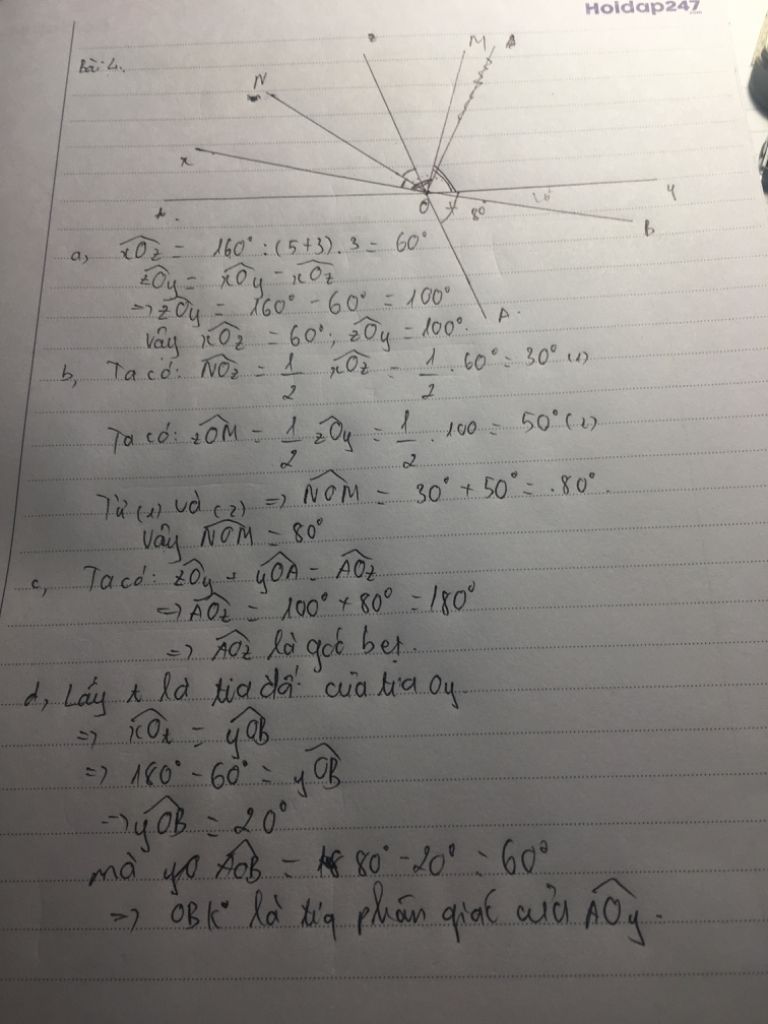 Hoidap247
Bài 4.
z M A
N
x
t. O 80° 20° y
B
A
a, xOz = 160° : (5+3) . 3 = 60°
zOy = xOy - xOz
=> zOy = 160° - 60° = 100°
Vậy xOz = 60° ; zOy = 100°.
b, Ta có: NOz = 1/2 xOz = 1/2 . 60° = 30° (1)
Ta có: zOM = 1/2 zOy = 1/2 . 100 = 50° (2)
Từ (1) và (2) => NOM = 30° + 50° = .80°.
Vậy NOM = 80°
c, Ta có: zOy + yOA = AOz
=> AOz = 100° + 80° = 180°
=> AOz là góc bẹt.
d, Lấy t là tia đối của tia Oy.
=> xOt = yOB
=> 180° - 60° = yOB
=> yOB = 20°
mà AOB = 80° - 20° = 60°
=> OB K° là tia phân giác của AOy.